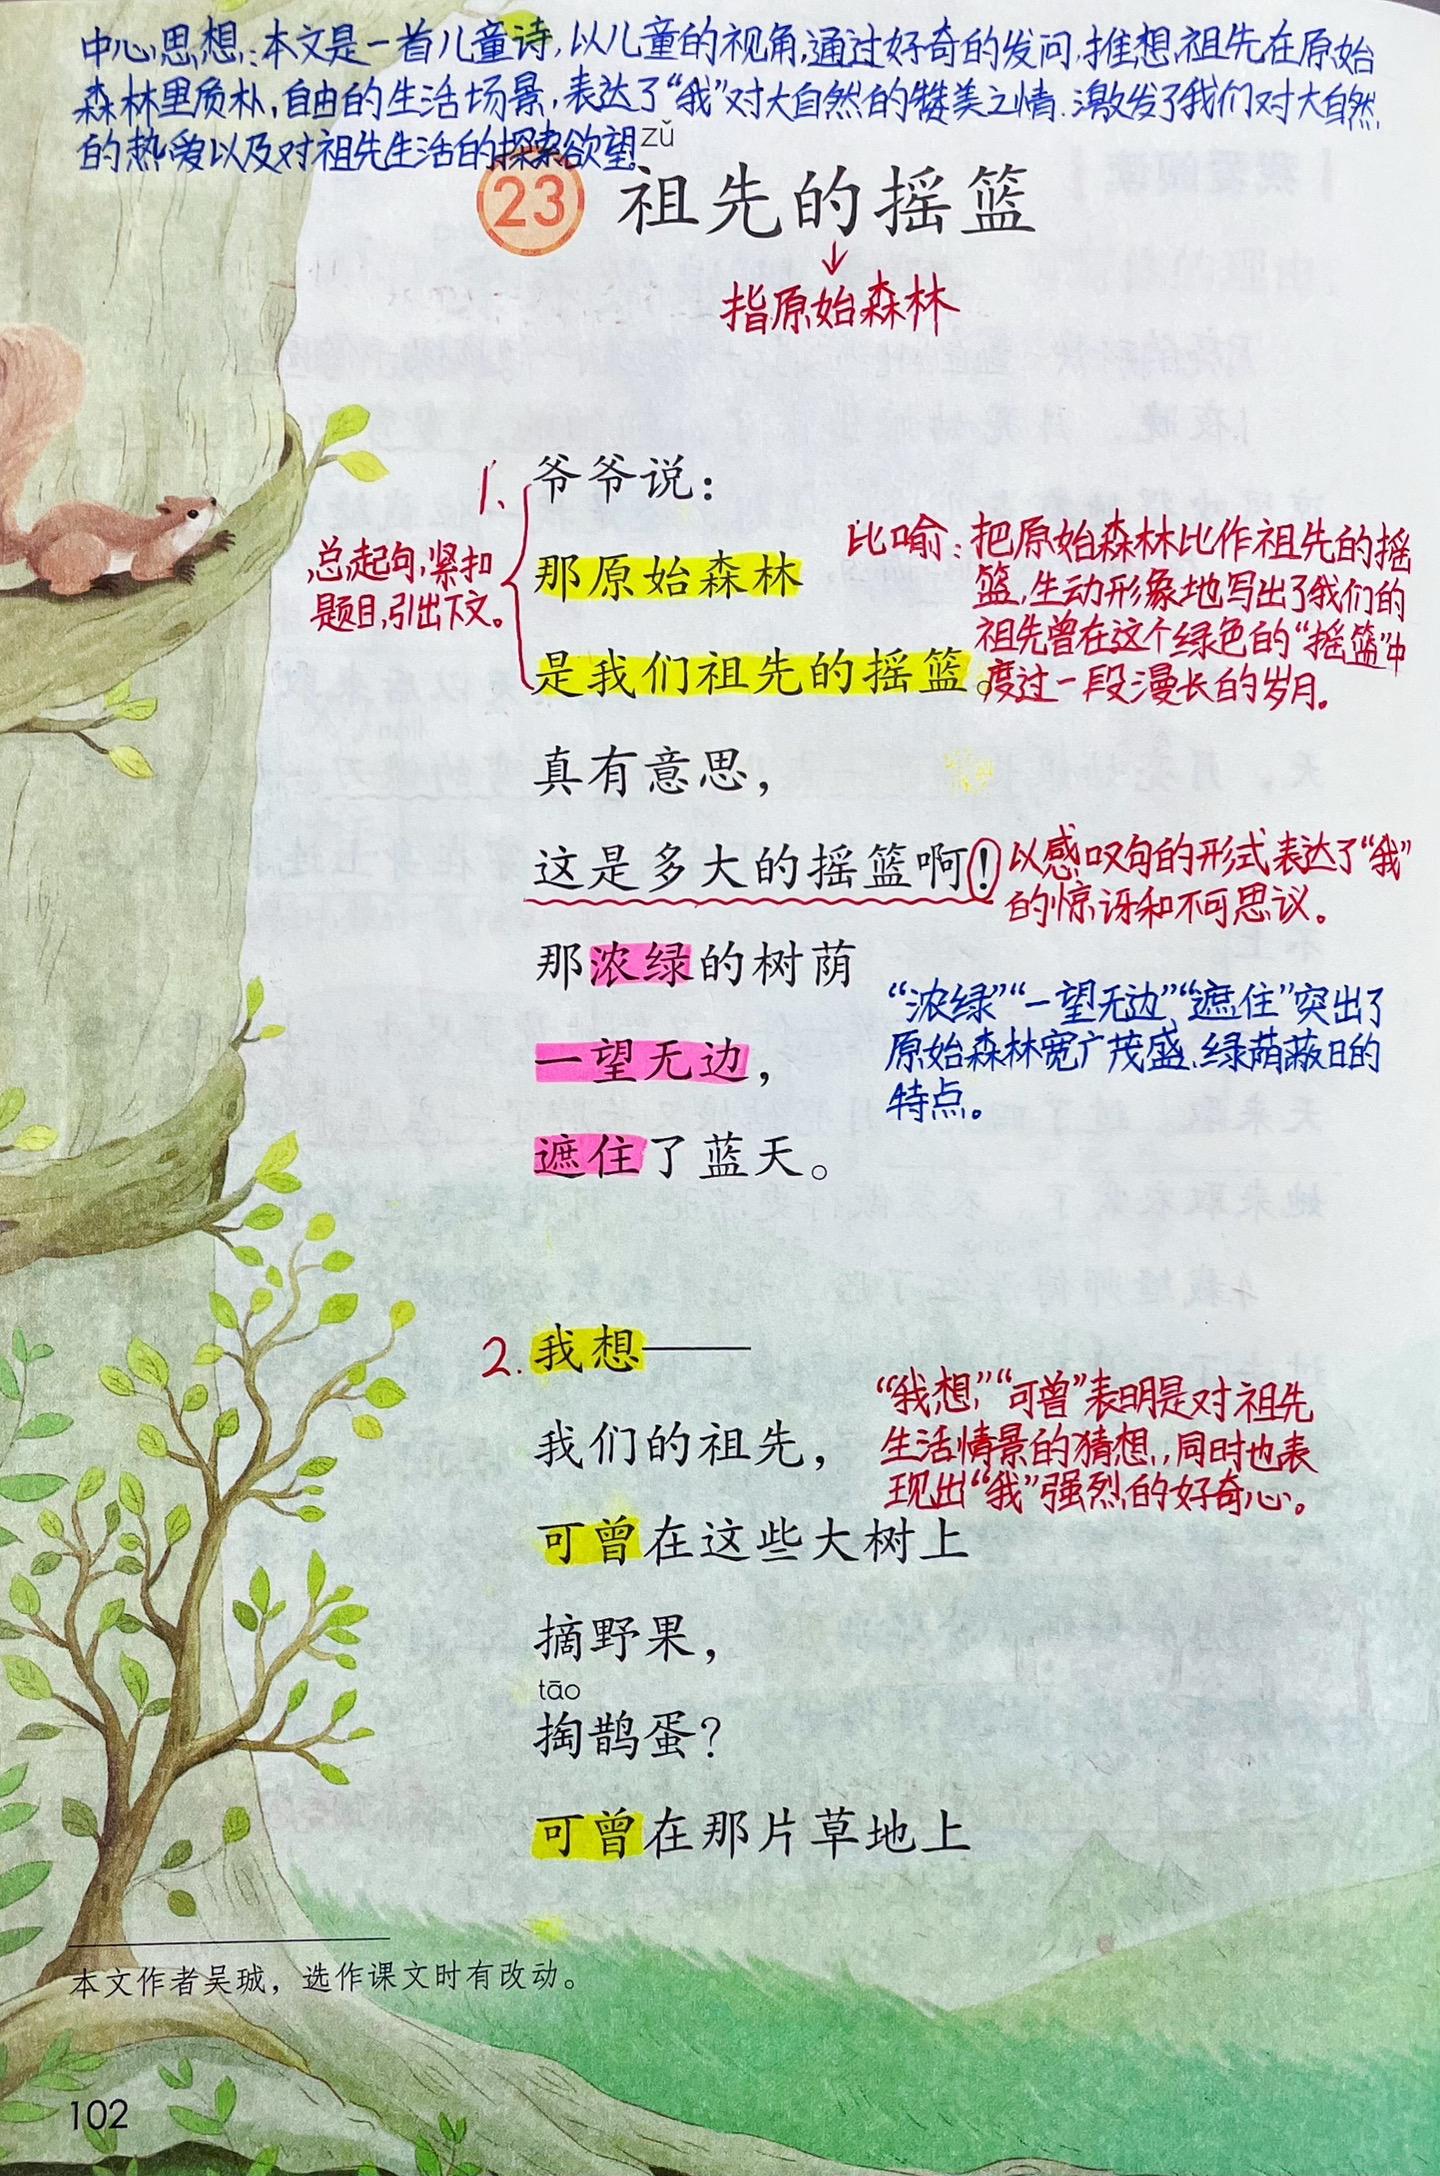 中心思想:本文是一首儿童诗,以儿童的视角,通过好奇的发问,推想祖先在原始
森林里质朴,自由的生活场景,表达了“我”对大自然的赞美之情.激发了我们对大自然
的热爱以及对祖先生活的探索欲望。
zǔ
23 祖先的摇篮
指原始森林
1. 爷爷说：
总起句,紧扣
题目,引出下文。
那原始森林
是我们祖先的摇篮。
比喻:把原始森林比作祖先的摇
篮,生动形象地写出了我们的
祖先曾在这个绿色的“摇篮”中
度过一段漫长的岁月。
真有意思，
这是多大的摇篮啊！
以感叹句的形式表达了“我”
的惊讶和不可思议。
那浓绿的树荫
一望无边，
遮住了蓝天。
“浓绿”“一望无边”、“遮住”突出了
原始森林宽广茂盛、绿荫蔽日的
特点。
2. 我想——
我们的祖先，
可曾在这些大树上
“我想”“可曾”表明是对祖先
生活情景的猜想,同时也表
现出“我”强烈的好奇心。
摘野果，
tāo
掏鹊蛋？
可曾在那片草地上
本文作者吴珹，选作课文时有改动。
102